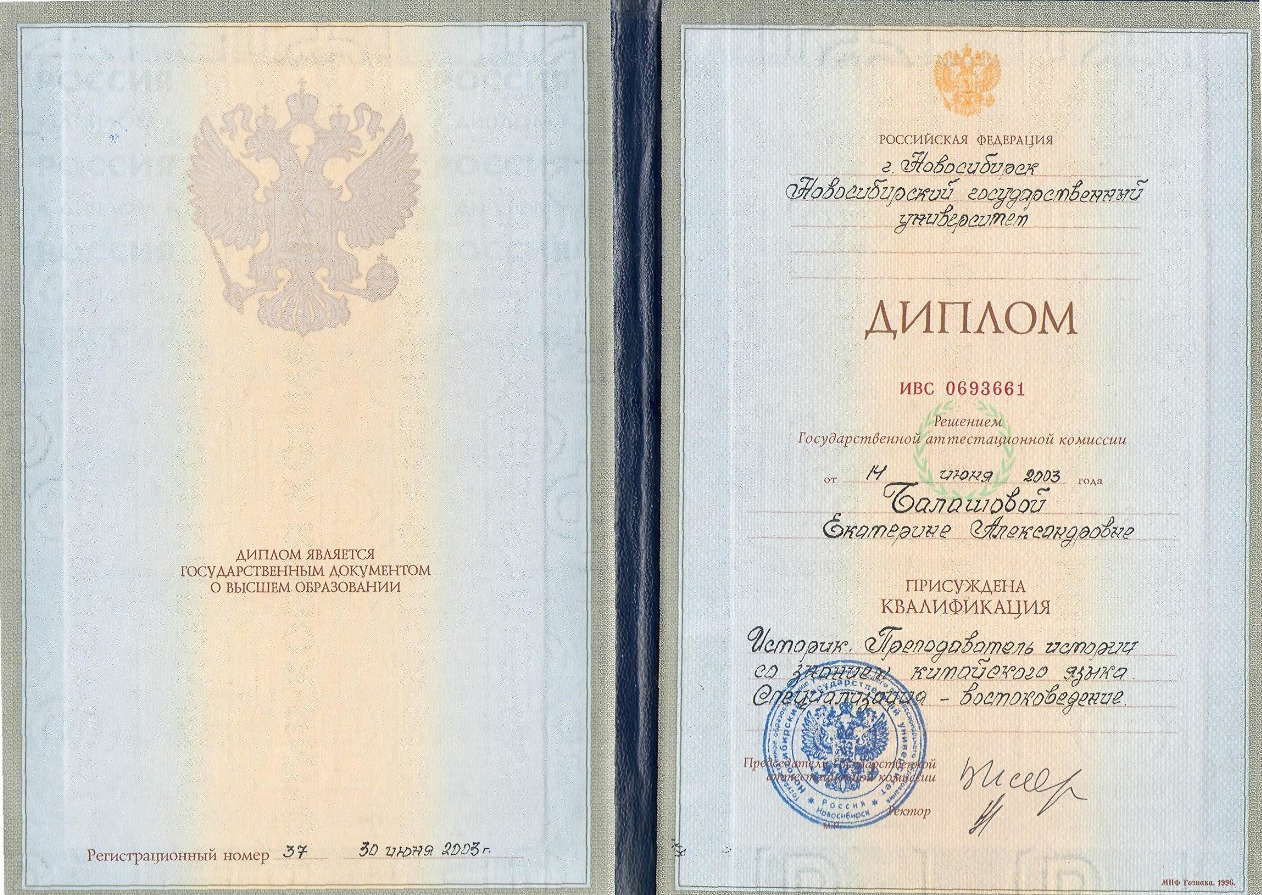 ДИПЛОМ ЯВЛЯЕТСЯ
ГОСУДАРСТВЕННЫМ ДОКУМЕНТОМ
О ВЫСШЕМ ОБРАЗОВАНИИ
Регистрационный номер 37 30 июня 2003г.
РОССИЙСКАЯ ФЕДЕРАЦИЯ
г. Новосибирск
Новосибирский государственный
университет
ДИПЛОМ
ИВС 0693661
Решением
Государственной аттестационной комиссии
от 14 июня 2003 года
Балашовой
Екатерине Александровне
ПРИСУЖДЕНА
КВАЛИФИКАЦИЯ
Историк. Преподаватель истории
со знанием китайского языка
Специализация – востоковедение.
Председатель Государственной
аттестационной комиссии
Ректор
РОССИЯ
Новосибирск
МПФ Гознака. 1996.